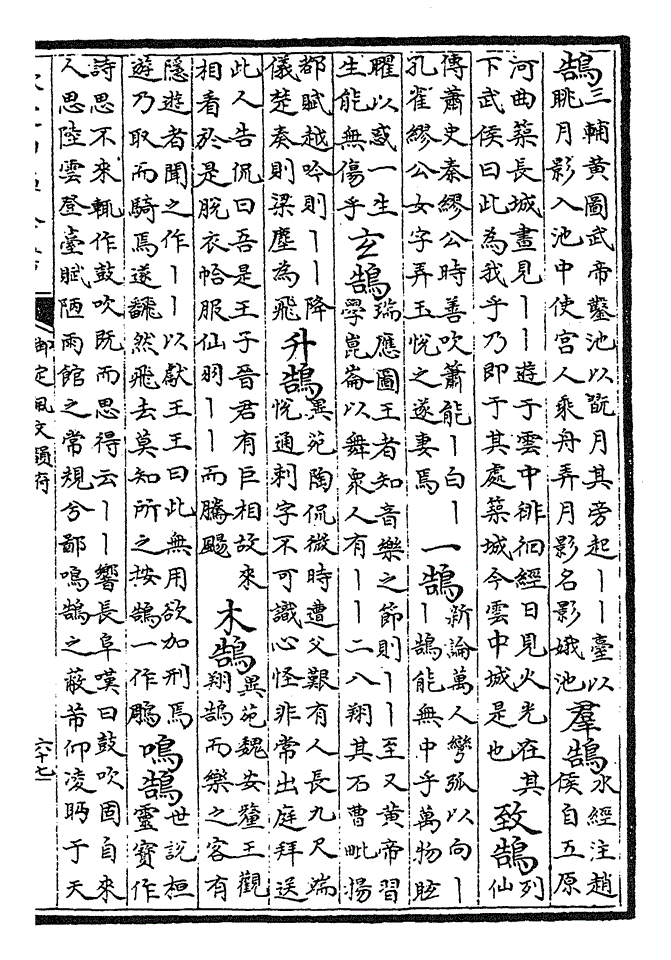 鵠
三輔黃圖武帝鑿池以翫月其旁起丨丨臺以
眺月影入池中使宫人乘舟弄月影名影娥池
羣鵠
水經注趙
侯自五原
河曲築長城晝見丨丨遊于雲中徘徊經日見火光在其
下武侯曰此為我乎乃即于其處築城今雲中城是也
致鵠
列
仙
傳蕭史秦繆公時善吹簫能丨白丨
孔雀繆公女字弄玉悅之遂妻焉
一鵠
新論萬人彎弧以向丨
丨鵠能無中乎萬物眩
矅以惑一生
生能無傷乎
玄鵠
瑞應圖王者知音樂之節則丨丨至又黄帝習
學崑崙以舞眾人有丨丨二八翔其石曹毗揚
都賦越吟則丨丨降
儀楚奏則梁塵為飛
升鵠
異苑陶侃微時遭父艱有人長九尺端
悅通刺字不可識心怪非常出庭拜送
此人告侃曰吾是王子晉君有巨相故來
相看於是脱衣帢服仙羽丨丨而騰颺
木鵠
異苑魏安釐王觀
翔鵠而樂之客有
隱遊者聞之作丨丨以獻王王曰此無用欲加刑焉
遊乃取而騎焉遂飜然飛去莫知所之按鵠一作鵰
鳴鵠
世説桓
靈寶作
詩思不來輒作鼓吹既而思得云丨丨響長阜嘆曰鼓吹固自來
人思陸雲登臺賦陋雨館之常規兮鄙鳴鵠之蔽芾仰凌眄于天
御定佩文韻府
六十七